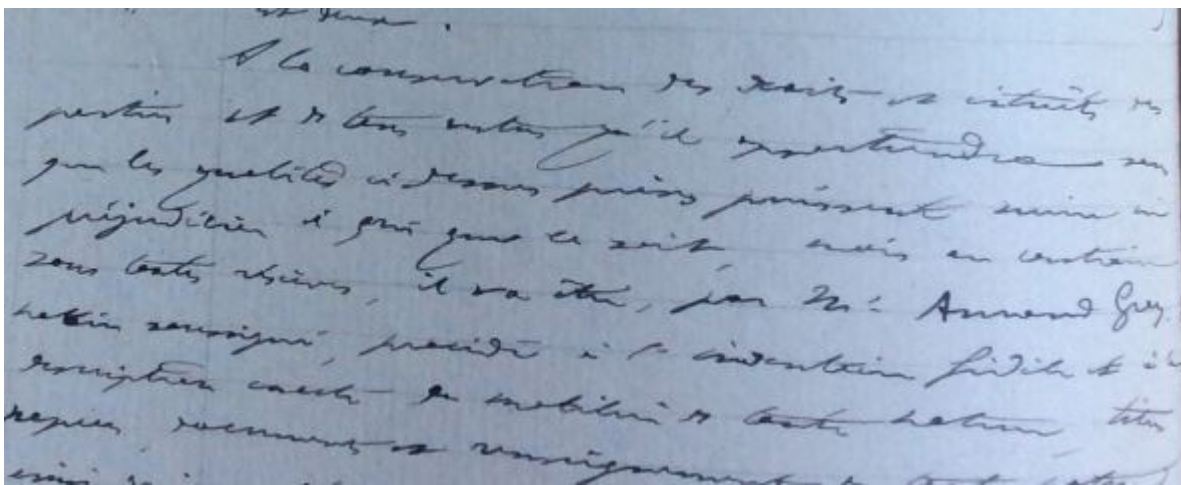 et deux.
A la conservation des droits et intérêts des
parties et de tous autres qu'il appartiendra sans
que les qualités ci dessus prises puissent nuire ni
préjudicier à qui que ce soit, mais au contraire
sous toutes réserves, il va être, par Me Armand Grey
notaire soussigné, procédé à l'inventaire fidèle et à la
description exacte du mobilier de toute nature, titres
papiers, documents et renseignements de toute nature